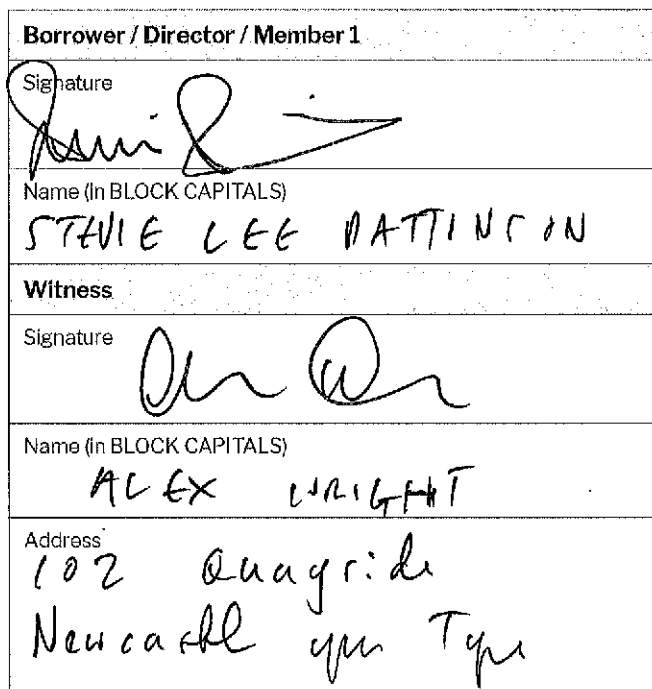 Borrower / Director / Member 1
Signature
Name (in BLOCK CAPITALS)
STEVIE LEE PATTINSON
Witness
Signature
Name (in BLOCK CAPITALS)
ALEX WRIGHT
Address
102 Quayside
Newcastle upon Tyne